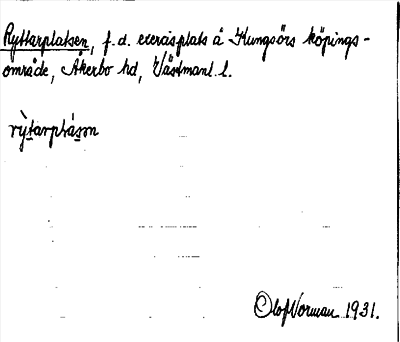 Ryttarplatsen, f.d. exercisplats å Kungsörs köpings-
område, Åkerbo hd, Västmanl. l.
rỳtarplásən
Olof Norman 1931.